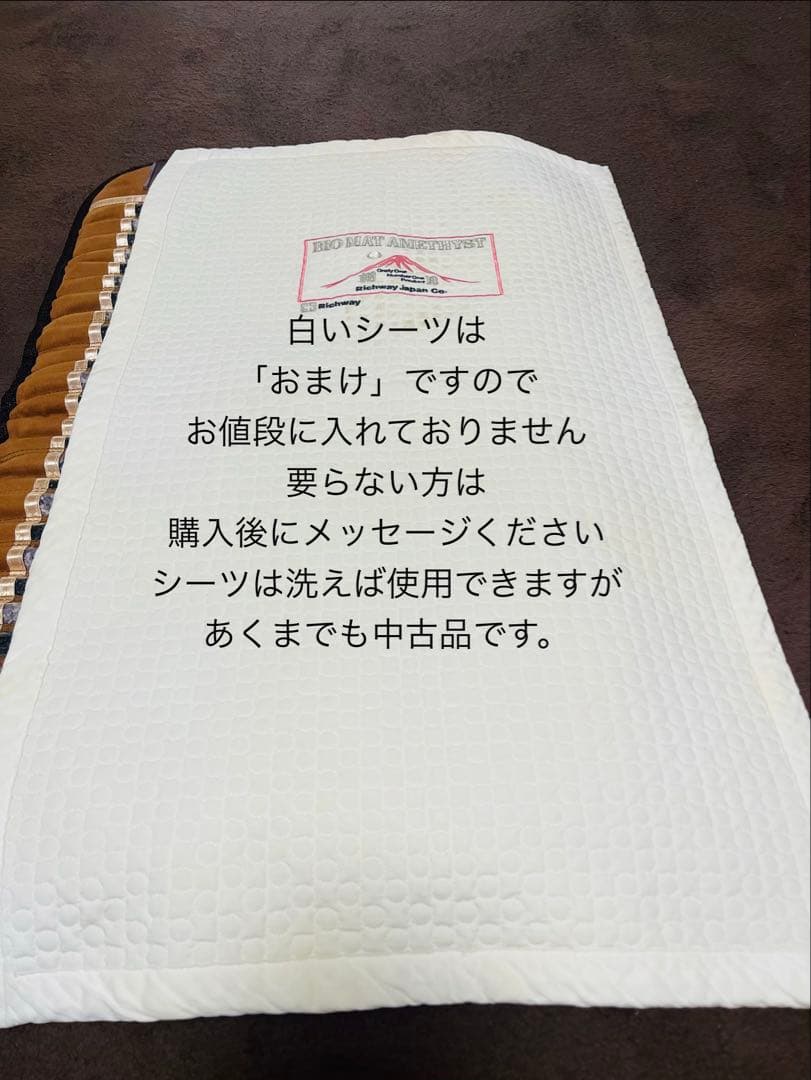 BIO MAT AMETHYST
Only One
Number One
Product
Richway Japan Co.
Richway
白いシーツは
「おまけ」ですので
お値段に入れておりません
要らない方は
購入後にメッセージください
シーツは洗えば使用できますが
あくまでも中古品です。